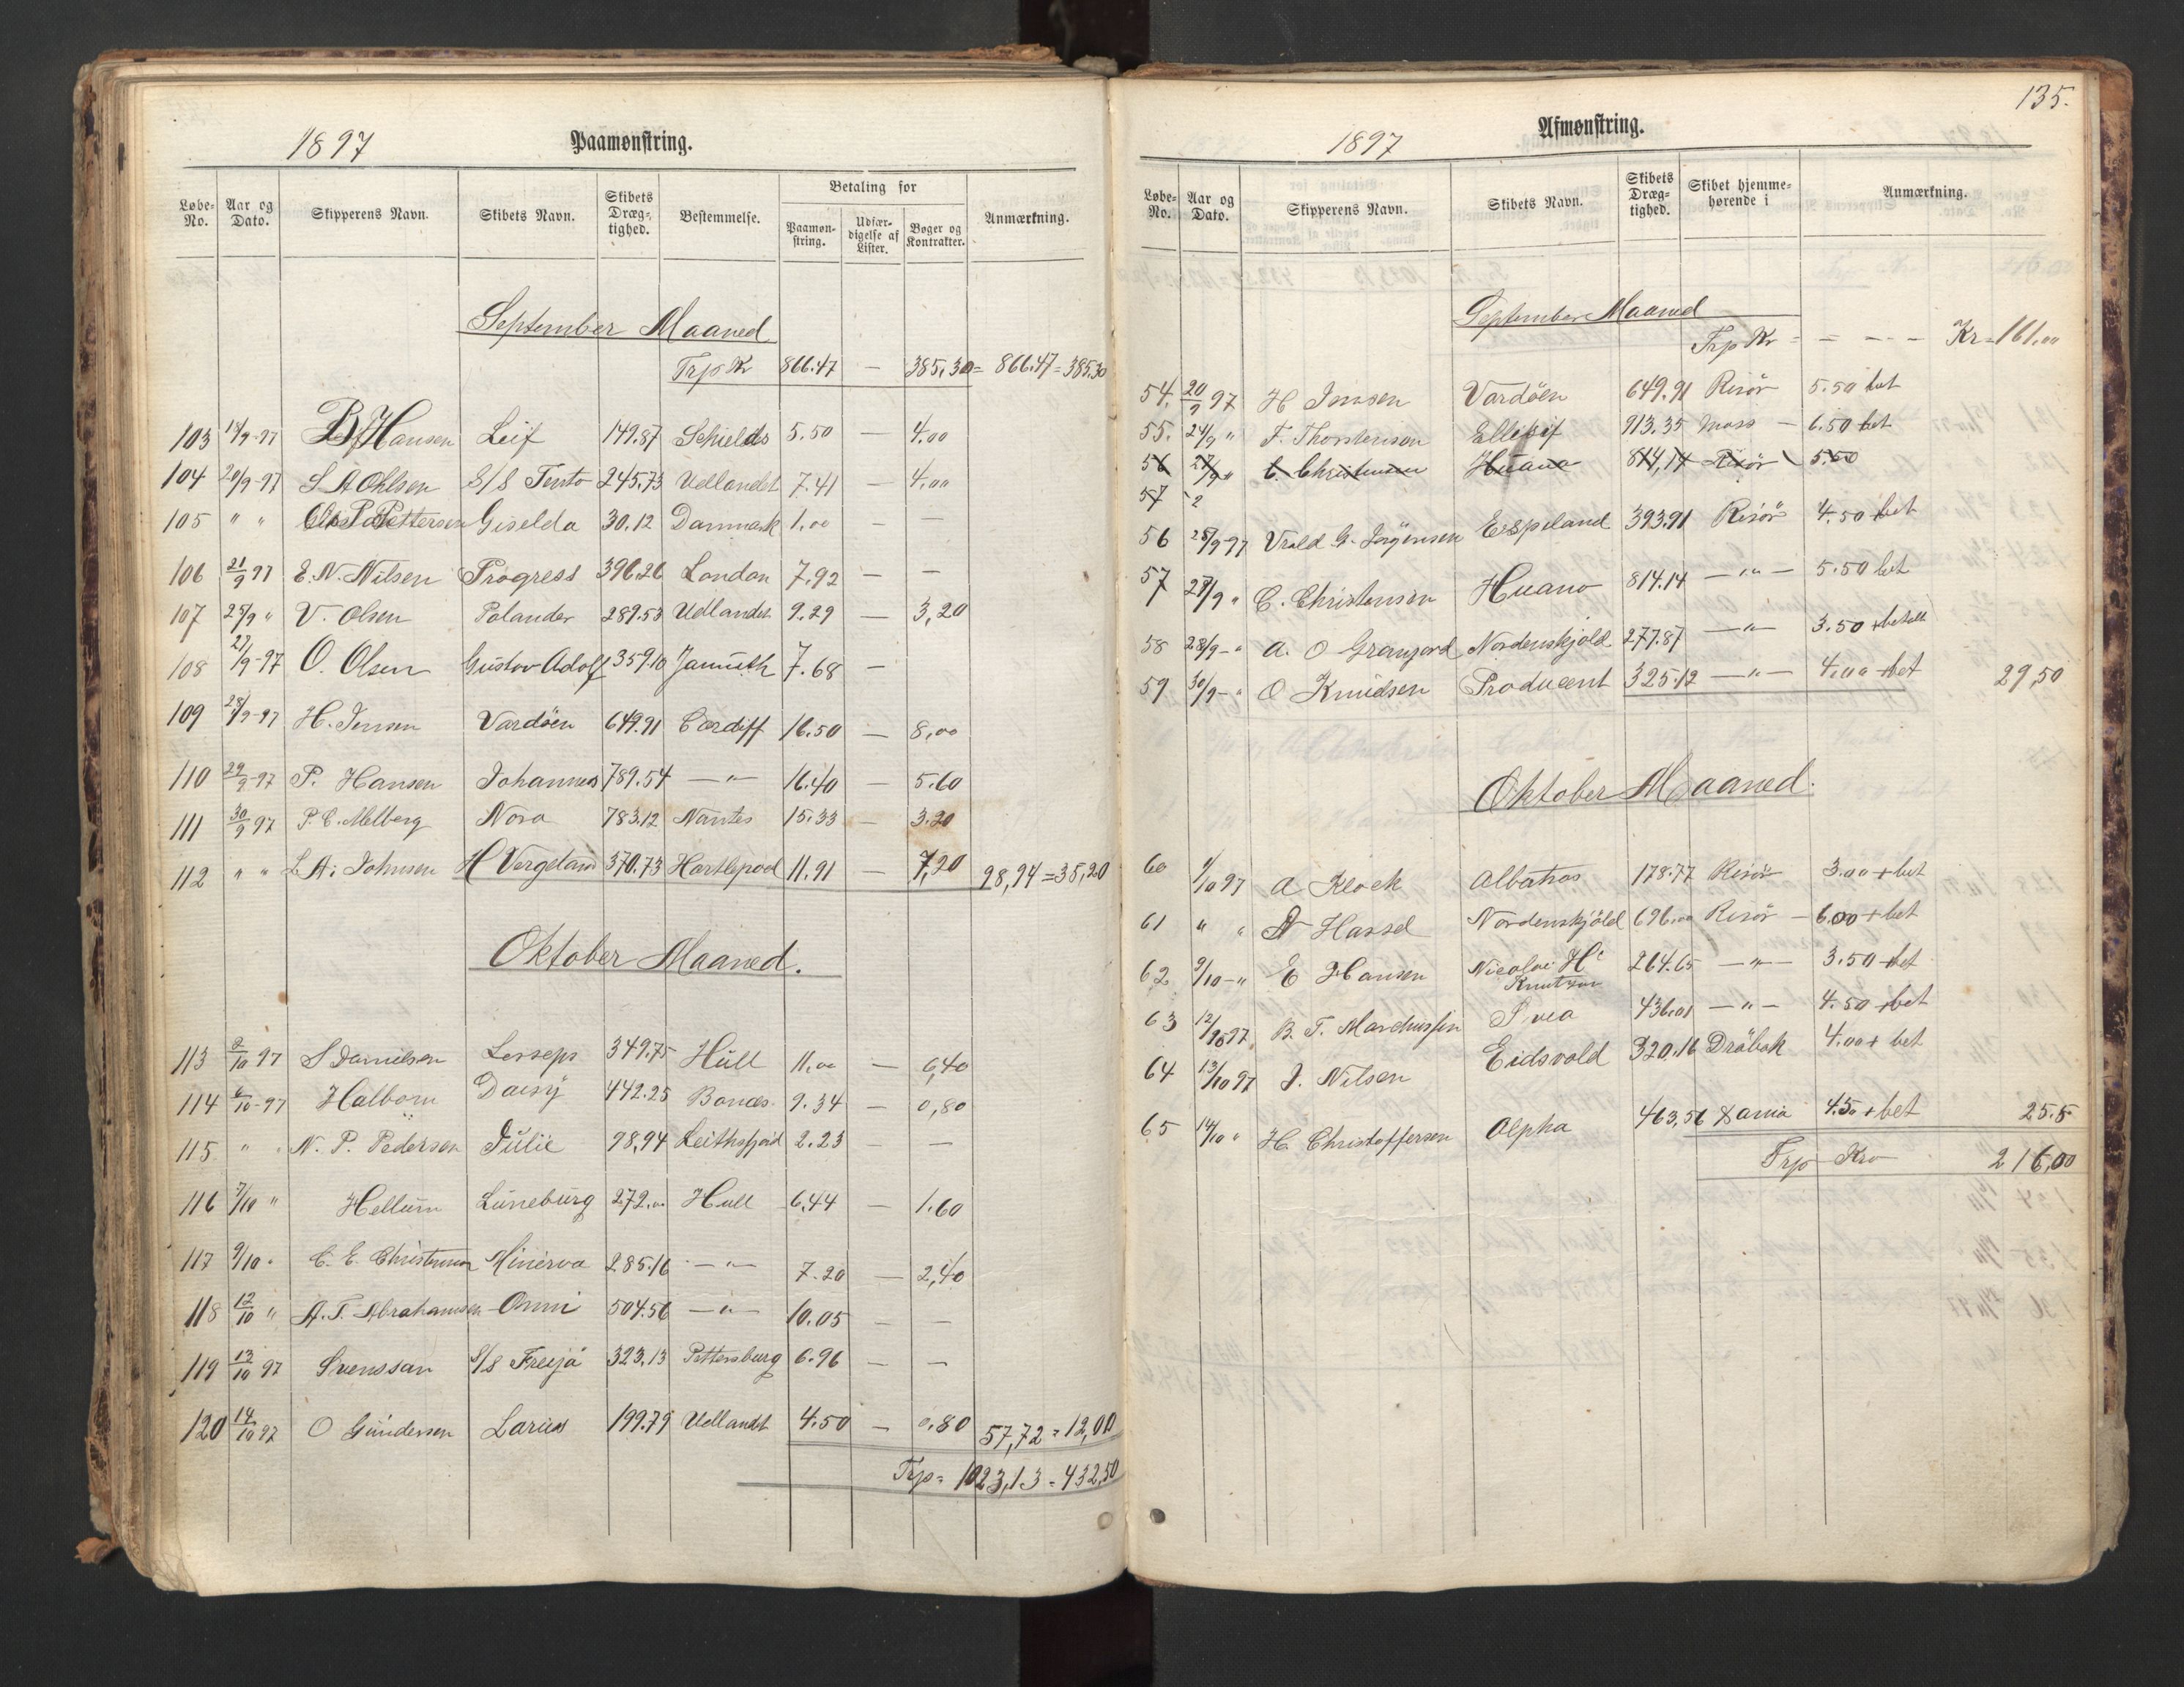 1897 Paamønstring.
Løbe-No. Aar og Dato. Skipperens Navn. Skibets Navn. Skibets Dræg-tighed. Bestemmelse. Betaling for Paamøn-string. Udfær-digelse af Lister. Bøger og Kontrakter. Anmærkning.
September Maaned
Trp Kr 866.47 — 385,30 = 866.47 = 385.30
103 18/9-97 B Hansen Leif 149.87 Schields 5.50 — 4,00
104 20/9-97 S A Ohlsen S/S Tento 245.73 Udlandet 7.41 — 4,00
105 " " Pettersen Giselda 30.12 Danmark 1,00 — —
106 21/9 97 E. N. Nilsen Progress 396.26 London 7.92 — —
107 25/9 " V. Olsen Polander 289.53 Udlandet 9.29 — 3,20
108 27/9-97 O. Olsen Gustov Adolf 359.10 Jarmuth 7.68 —
109 28/9-97 H. Jensen Vardöen 649.91 Cardiff 16.50 — 8,00
110 29/9-97 P. Hansen Johannes 789.54 —"— 16.40 — 5.60
111 30/9 97 P. C. Melberg Nora 783.12 Nantes 15.33 — 3.20
112 " " L. A. Johnsen H Vergeland 370.73 Hartlepool 11.91 — 7,20 98,94 = 35,20
Oktober Maaned.
113 2/10 97 S Danielsen Lesseps 349.75 Hull 11,00 — 6,40
114 6/10-97 Halborn Daisy 442.25 Bonæs 9.34 — 0,80
115 " " N. P. Pedersen Julie 98,94 Leithsfjord 2.23 — —
116 7/10 " Hellum Lüneburg 272,00 Hull 6,44 — 1.60
117 9/10 " C. E. Christensen Minerva 285.16 —"— 7.20 — 2,40
118 12/10 " A. T. Abrahamsen Onni 504.56 —"— 10.05 — —
119 13/10 97 Svenssan S/S Freija 323,13 Pettersburg 6.96 — —
120 14/10 97 O Gundersen Larius 199.79 Udlandet 4.50 — 0.80 57,72 = 12,00
Trp = 1023,13 = 432,50
135.
1897 Afmønstring.
Løbe-No. Aar og Dato. Skipperens Navn. Skibets Navn. Skibets Dræg-tighed. Skibet hjemme-hørende i Anmærkning.
September Maaned
Trp Kr = — — — Kr = 161,00
54. 20/9 97 H Jensen Vardöen 649.91 Risör 5.50 bet
55. 24/9 " F. Thorstensen Ellesif 913.35 Moss — 6.50 bet
56 27/9 " C. Christensen Huano 814,14 Risör 5.50
57
56 28/9-97 Vrold G. Jörgensen Espeland 393.91 Risör 4.50 bet
57 28/9 " C. Christensen Huano 814.14 —"— 5.50 bet
58 28/9-" A. O Granjord Nordenskjold 277.87 —"— 3.50 + betalt
59 30/9-" O Knudsen Producent 325.12 —"— 4.00 + bet 29,50
Oktober Maaned.
60 1/10 97 A Klock Albatros 178.77 Risör 3.00 + bet
61 " " N Hassel Nordenskjöld 696.00 Risör — 6.00 + bet
62 9/10-" E Hansen Nicolai H. Knutzon 264.65 —"— 3.50 + bet
63 12/10 97 B. T. Marchussen Svea 436.01 —"— 4.50 + bet
64 13/10 97 J. Nilsen Eidsvold 320.16 Dröbak 4.00 + bet
65 14/10 " H. Christoffersen Alpha 463,56 Xania 4.50 + bet 25.5
Trp Kro 216,00